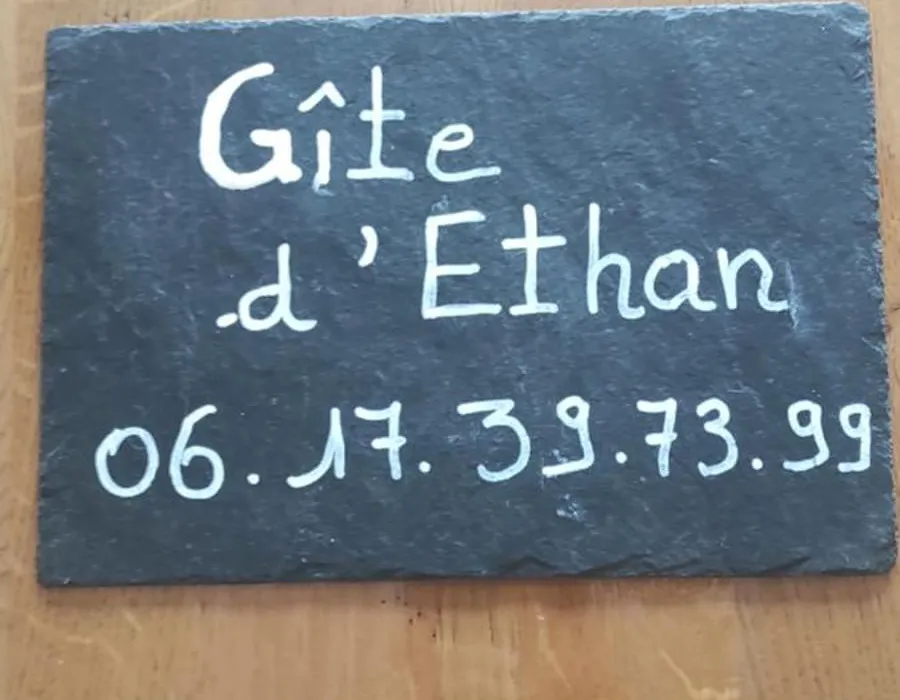 Gîte
d'Ethan
06.17.39.73.99